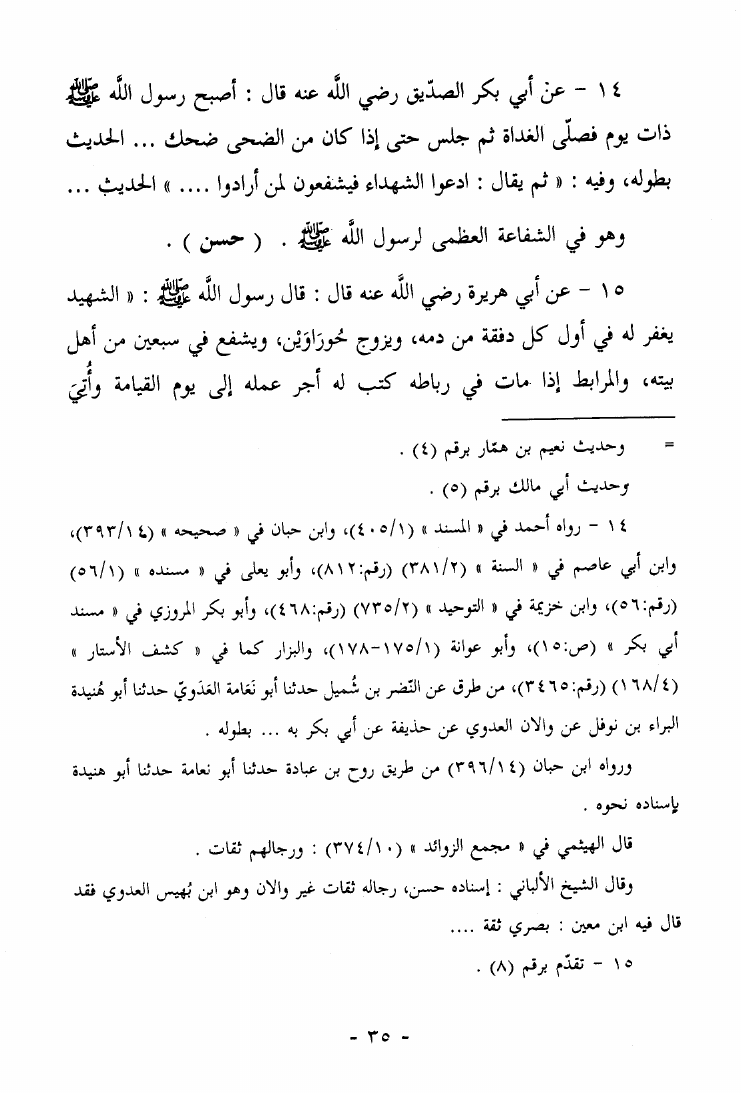 ١٤ - عن أبي بكر الصدّيق رضي اللَّه عنه قال : أصبح رسول اللَّه ﷺ
ذات يوم فصلّى الغداة ثم جلس حتى إذا كان من الضحى ضحك ... الحديث
بطوله، وفيه : « ثم يقال : ادعوا الشهداء فيشفعون لمن أرادوا .... » الحديث ...
وهو في الشفاعة العظمى لرسول اللَّه ﷺ . ( حسن ) .
١٥ - عن أبي هريرة رضي اللَّه عنه قال : قال رسول اللَّه ﷺ : « الشهيد
يغفر له في أول كل دفقة من دمه، ويزوج حُورَاوَيْن، ويشفع في سبعين من أهل
بيته، والمرابط إذا مات في رباطه كتب له أجر عمله إلى يوم القيامة وأُتِيَ
= وحديث نعيم بن همّار برقم (٤) .
وحديث أبي مالك برقم (٥) .
١٤ - رواه أحمد في « المسند » (٤٠٥/١)، وابن حبان في « صحيحه » (٣٩٣/١٤)،
وابن أبي عاصم في « السنة » (٣٨١/٢) (رقم:٨١٢)، وأبو يعلى في « مسنده » (٥٦/١)
(رقم:٥٦)، وابن خزيمة في « التوحيد » (٧٣٥/٢) (رقم:٤٦٨)، وأبو بكر المروزي في « مسند
أبي بكر » (ص:١٥)، وأبو عوانة (١٧٥/١-١٧٨)، والبزار كما في « كشف الأستار »
(١٦٨/٤) (رقم:٣٤٦٥)، من طرق عن النّضر بن شُميل حدثنا أبو نَعَامة العَدَويّ حدثنا أبو هُنيدة
البراء بن نوفل عن والان العدوي عن حذيفة عن أبي بكر به ... بطوله .
ورواه ابن حبان (٣٩٦/١٤) من طريق روح بن عبادة حدثنا أبو نعامة حدثنا أبو هنيدة
بإسناده نحوه .
قال الهيثمي في « مجمع الزوائد » (٣٧٤/١٠) : ورجالهم ثقات .
وقال الشيخ الألباني : إسناده حسن، رجاله ثقات غير والان وهو ابن بُهيس العدوي فقد
قال فيه ابن معين : بصري ثقة ....
١٥ - تقدّم برقم (٨) .
- ٣٥ -